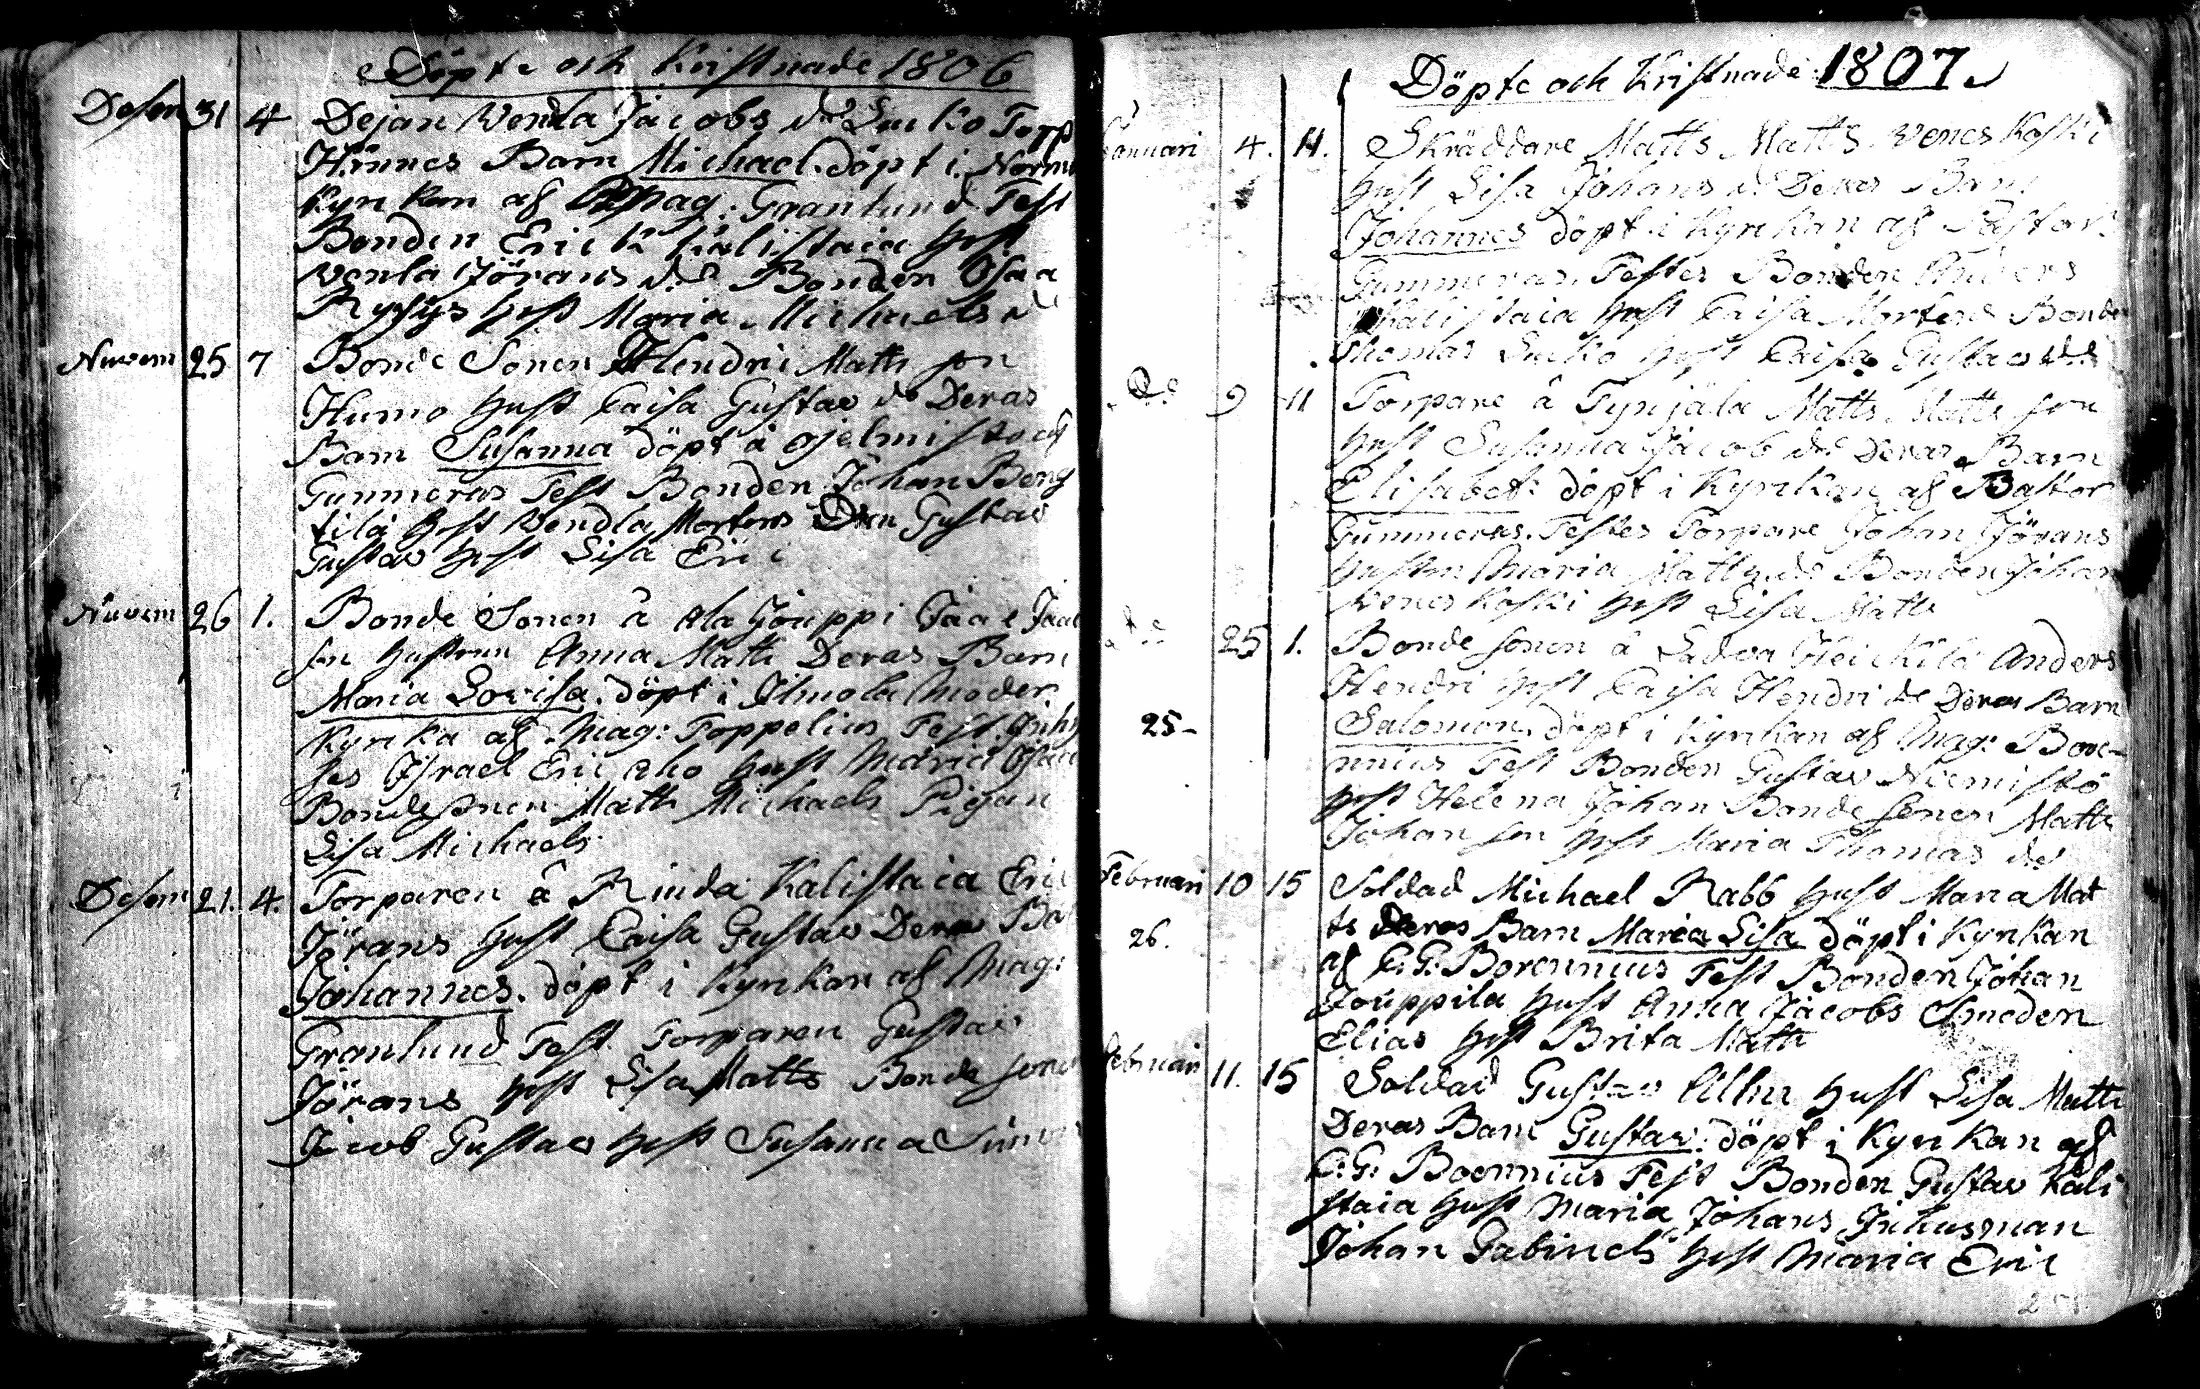 Döpte och Kristnade 1806
Desem 31 4 Dejan Wenla Jacobs dr Luko Torp
Hinnes Barn Michael döpt i Norm
Kyrckan af Mag: Granlund Test
Bonden Eric Kalistaia Hust
Wenla Jörans dr Bonden Esaa
Rysys Hust Maria Michaels dr
Nuvem 25 7 Bonde Sonen Hendric Matts son
Humo Hust Caisa Gustav dr Deras
Barn Susanna döpt å Ojelmisto af
Gummerus Test Bonden Johan Beng
tila Hust Wendla Mortens Gustav
Gustav Hust Lisa Eric
Nuvem 26 1. Bonde Sonen å Ala Jouppi Jaac Jaac
son hustrun Anna Matts Deras Barn
Maria Lovisa döpt i Ilmola Moder
Kyrcka af Mag: Toppelius Test Inhy
ses Israel Eric aho Hust Maria Isac
Bonde sonen Matts Michaels Pigan
Lisa Michaels
Desem 21. 4. Torparen å Rinda Kalistaia Eric
Jörans Hust Caisa Gustav Deras Ba
Johannes. döpt i Kyrckan af Mag:
Granlund Test Torparen Gustav
Jörans Hust Lisa Matts Bonde sonen
Jacob Gustav Hust Susanna Simo
Döpte och Kristnade 1807
Januari 4. 11. Skräddare Matts Matts Weneskoski
Hust Lisa Johans dr Deras Barn
Johannes döpt i Kyrckan af Pastor
Gummerus. Testes Bonden Anders
Kalistaia Hust Caisa Mortens Bonde
Thomas Luko Hust Caisa Gustavs dr
D:o 9 11 Torpare å Tynjälä Matts Matts son
Hust Susanna Jacob dr Deras Barn
Elisabet: döpt i Kyrckan af Pastor
Gummerus. Testes Torpare Johan Jörans
Hustru Maria Matts dr Bonden Johan
Weneskoski Hust Lisa Matts
25 1. Bonde sonen å Ladva Heickilä Anders
Hendri Hust Caisa Hendri dr Deras Barn
25- Salomon. döpt i Kyrckan af Mag: Bore
nnius Test Bonden Gustav Niemistö
Hust Helena Johan Bonde sonen Matts
Johan son Hust Maria Thomas dr
Februari 10 15 Soldad Michael Rabb Hust Maria Mat
26. ts Deras Barn Maria Lisa döpt i Kyrckan
af C: G: Borennius Test Bonden Johan
Jouppila Hust Anna Jacobs Smeden
Elias Hust Brita Matts
Februari 11. 15 Soldad Gustav Hust Lisa Matts
Deras Barn Gustav: döpt i Kyrckan af
C: G: Boennius Test Bonden Gustav Kali
staia Hust Maria Johans Inhusman
Johan Gabriels Hust Maria Eric